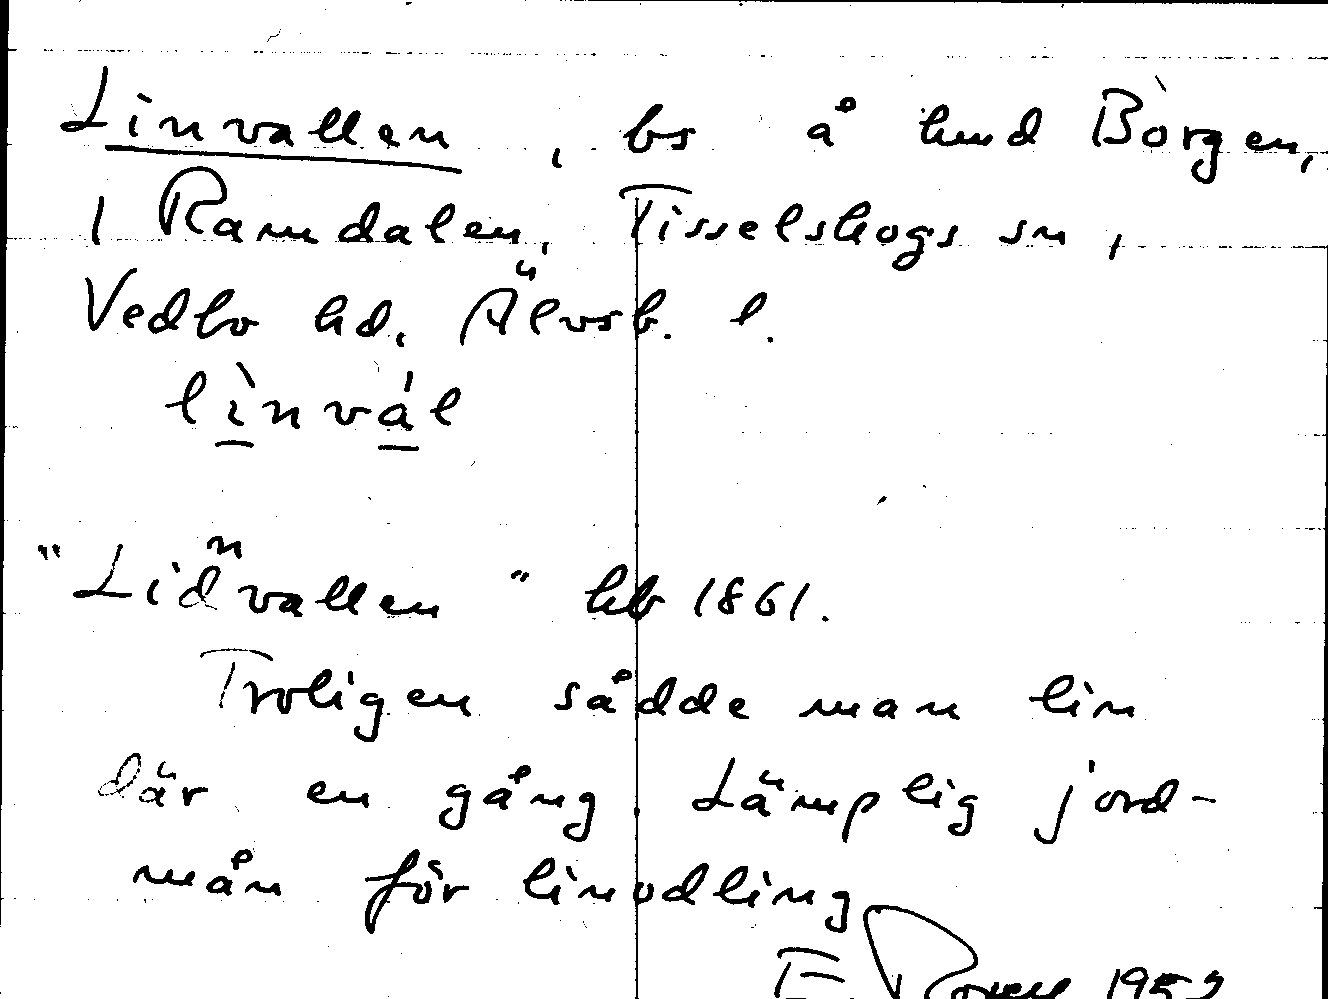 Linvallen, bs å hmd Borgen,
1 Ramdalen, Tisselskogs sn,
Vedbo hd. Älvsb. l.
lìnvál
n
"Lidvallen" hb 1861.
Troligen sådde man lin
där en gång. Lämplig jord-
mån för linodling
E